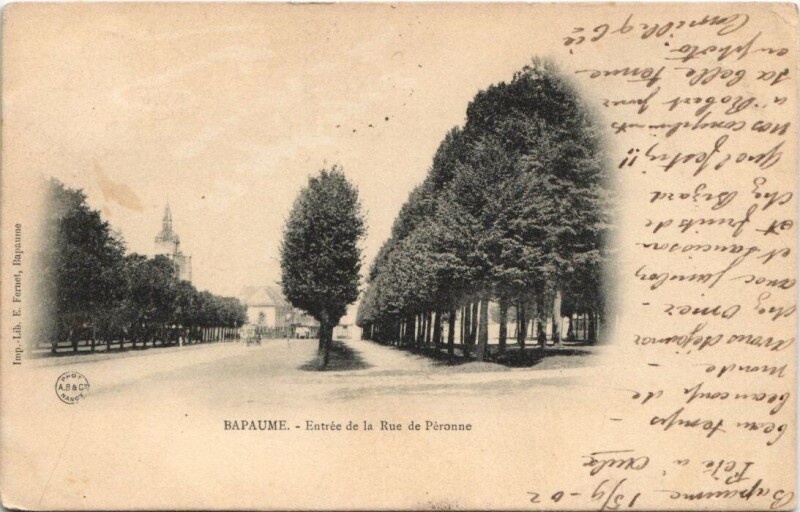 Imp.-Lib. E. Fernet, Bapaume
PHOT
A.B & Cie
NANCY
BAPAUME. - Entrée de la Rue de Péronne
Bapaume 15/9-02
beau temps
beaucoup de
monde -
avons déjeuner
chez Omer -
avec jambon
et saucisson
et fruits de
chez Bizard
Quel festin !!
Nos compliments
à Robert pour
sa belle
en photo.